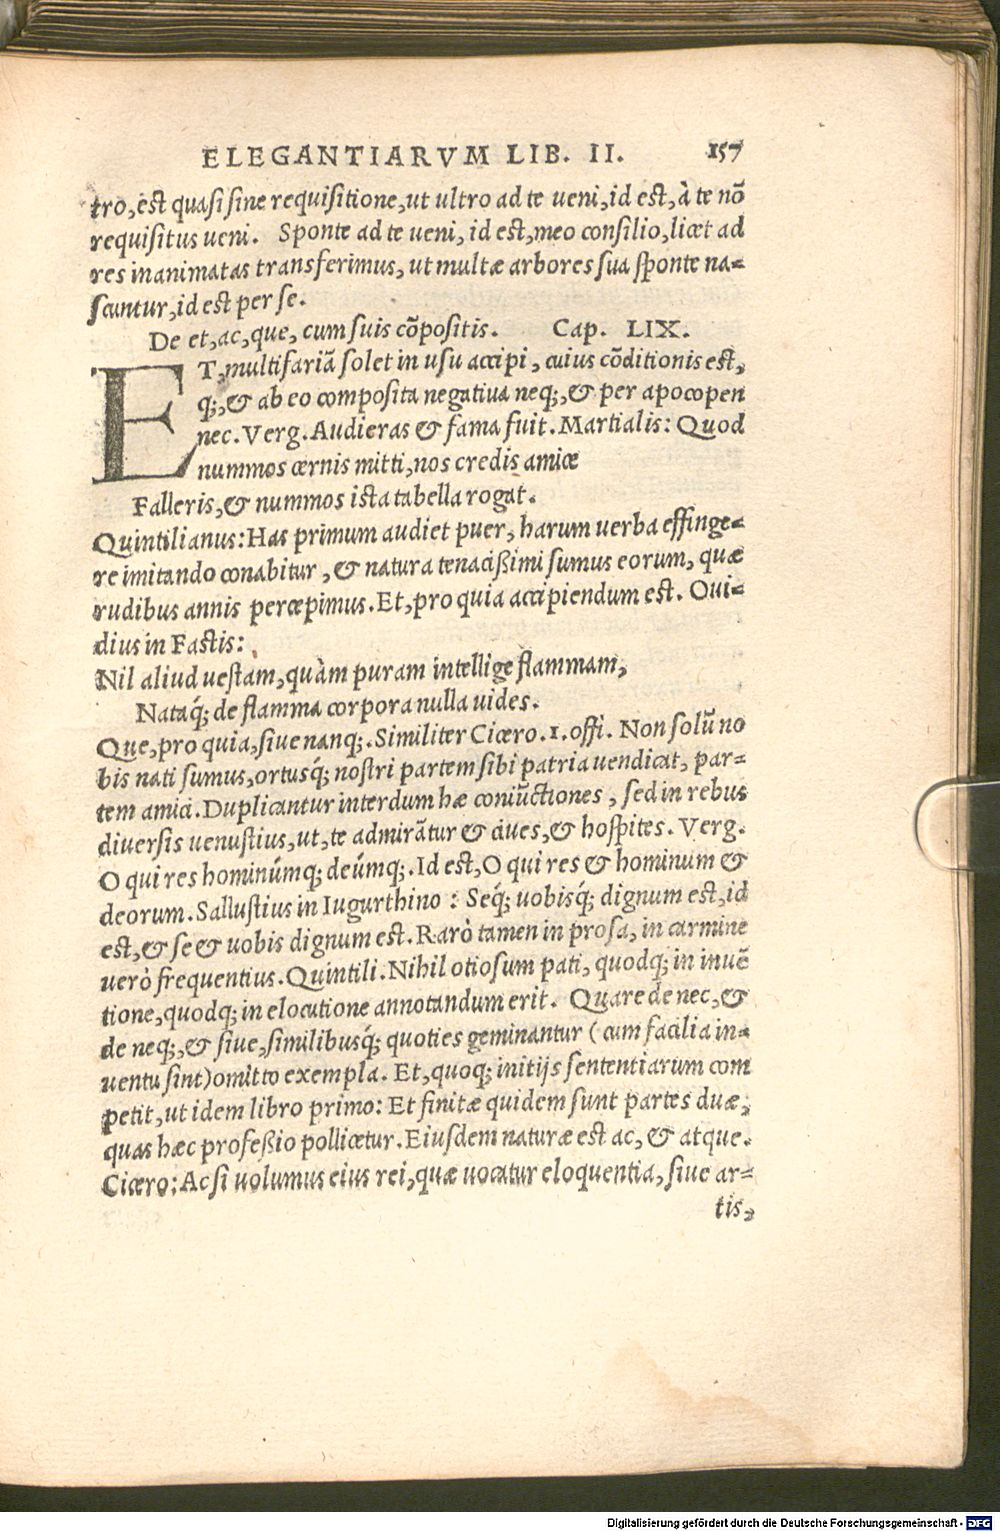 ELEGANTIARVM LIB. II. 157
tro, est quasi sine requisitione, ut ultro ad te veni, id est, à te nõ
requisitus ueni. Sponte ad te ueni, id est, meo consilio, licet ad
res inanimatas transferimus, ut multæ arbores sua sponte na-
scuntur, id est per se.
De et, ac, que, cum suis cõpositis. Cap. LIX.
ET, multifariã solet in usu accipi, cuius cõditionis est,
q;, & ab eo composita negatiua neq;, & per apocopen
nec. Verg. Audieras & fama fuit. Martialis: Quod
nummos cernis mitti, nos credis amice
Falleris, & nummos ista tabella rogat.
Quintilianus: Has primum audiet puer, harum uerba effinge-
re imitando conabitur, & natura tenacißimi sumus eorum, quæ
rudibus annis percepimus. Et, pro quia accipiendum est. Oui-
dius in Fastis:
Nil aliud uestam, quàm puram intellige flammam,
Nataq́; de flamma corpora nulla uides.
Que, pro quia, siue nanq;. Similiter Cicero. 1. offi. Non solũ no
bis nati sumus, ortusq́; nostri partem sibi patria uendicat, par-
tem amici. Duplicantur interdum hæ coniũctiones, sed in rebus
diuersis uenustius, ut, te admirãtur & ciues, & hospites. Verg.
O qui res hominúmq; deúmq;. Id est, O qui res & hominum &
deorum. Sallustius in Iugurthino: Seq́; uobisq́; dignum est, id
est, & se & uobis dignum est. Rarò tamen in prosa, in carmine
uerò frequentius. Quintili. Nihil otiosum pati, quodq; in inuẽ
tione, quodq; in elocutione annotandum erit. Quare de nec, &
de neq;, & siue, similibusq́; quoties geminantur (cum facilia in-
uentu sint) omitto exempla. Et, quoq; initijs sententiarum com
petit, ut idem libro primo: Et finitæ quidem sunt partes duæ,
quas hæc profeßio pollicetur. Eiusdem naturæ est ac, & atque.
Cicero: Ac si uolumus eius rei, quæ uocatur eloquentia, siue ar-
tis,
Digitalisierung gefördert durch die Deutsche Forschungsgemeinschaft - DFG